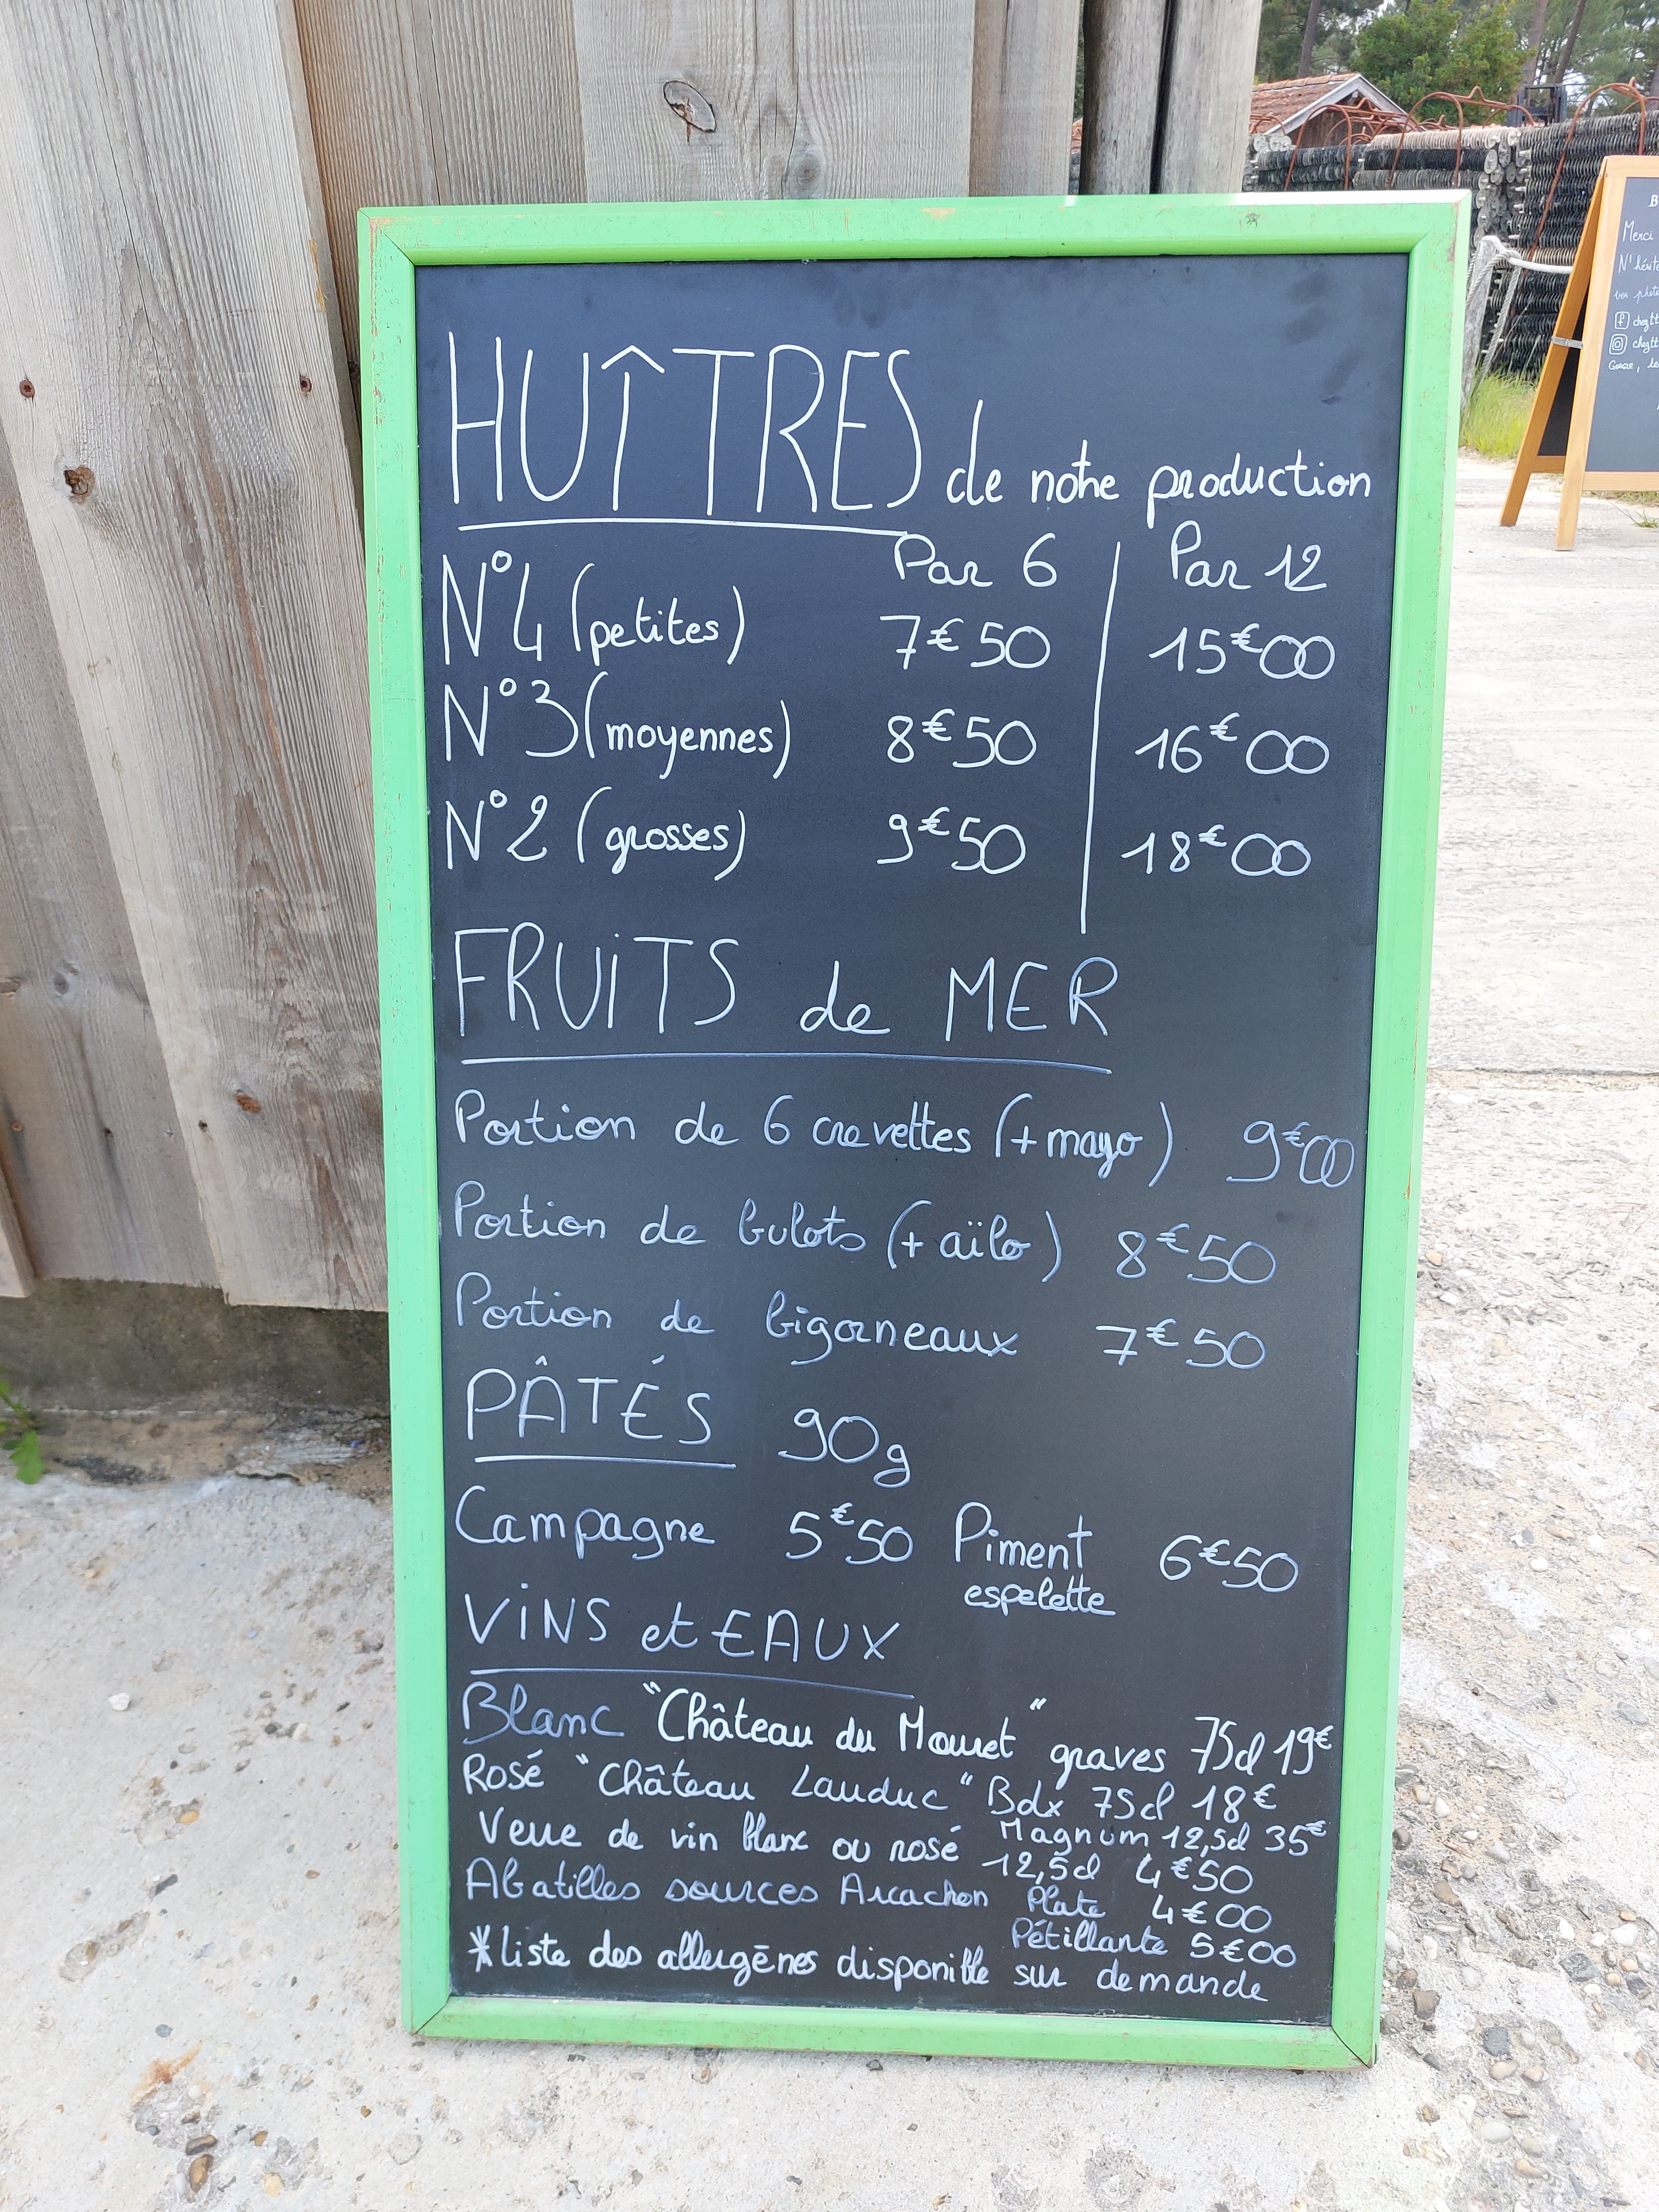 HUÎTRES de notre production
Par 6 Par 12
N°4 (petites) 7€50 15€00
N°3 (moyennes) 8€50 16€00
N°2 (grosses) 9€50 18€00
FRUiTS de MER
Portion de 6 crevettes (+ mayo) 9€00
Portion de bulots (+ aïlo) 8€50
Portion de bigorneaux 7€50
PÂTÉS 90g
Campagne 5€50 Piment 6€50
espelette
ViNS et EAUX
Blanc "Château du Mouret" graves 75cl 19€
Rosé "Château Lauduc" Bdx 75cl 18€
Magnum 12,5cl 35€
Verre de vin blanc ou rosé 12,5cl 4€50
Abatilles sources Arcachon Plate 4€00
Pétillante 5€00
*Liste des allergēnes disponible sur demande
B
Merci